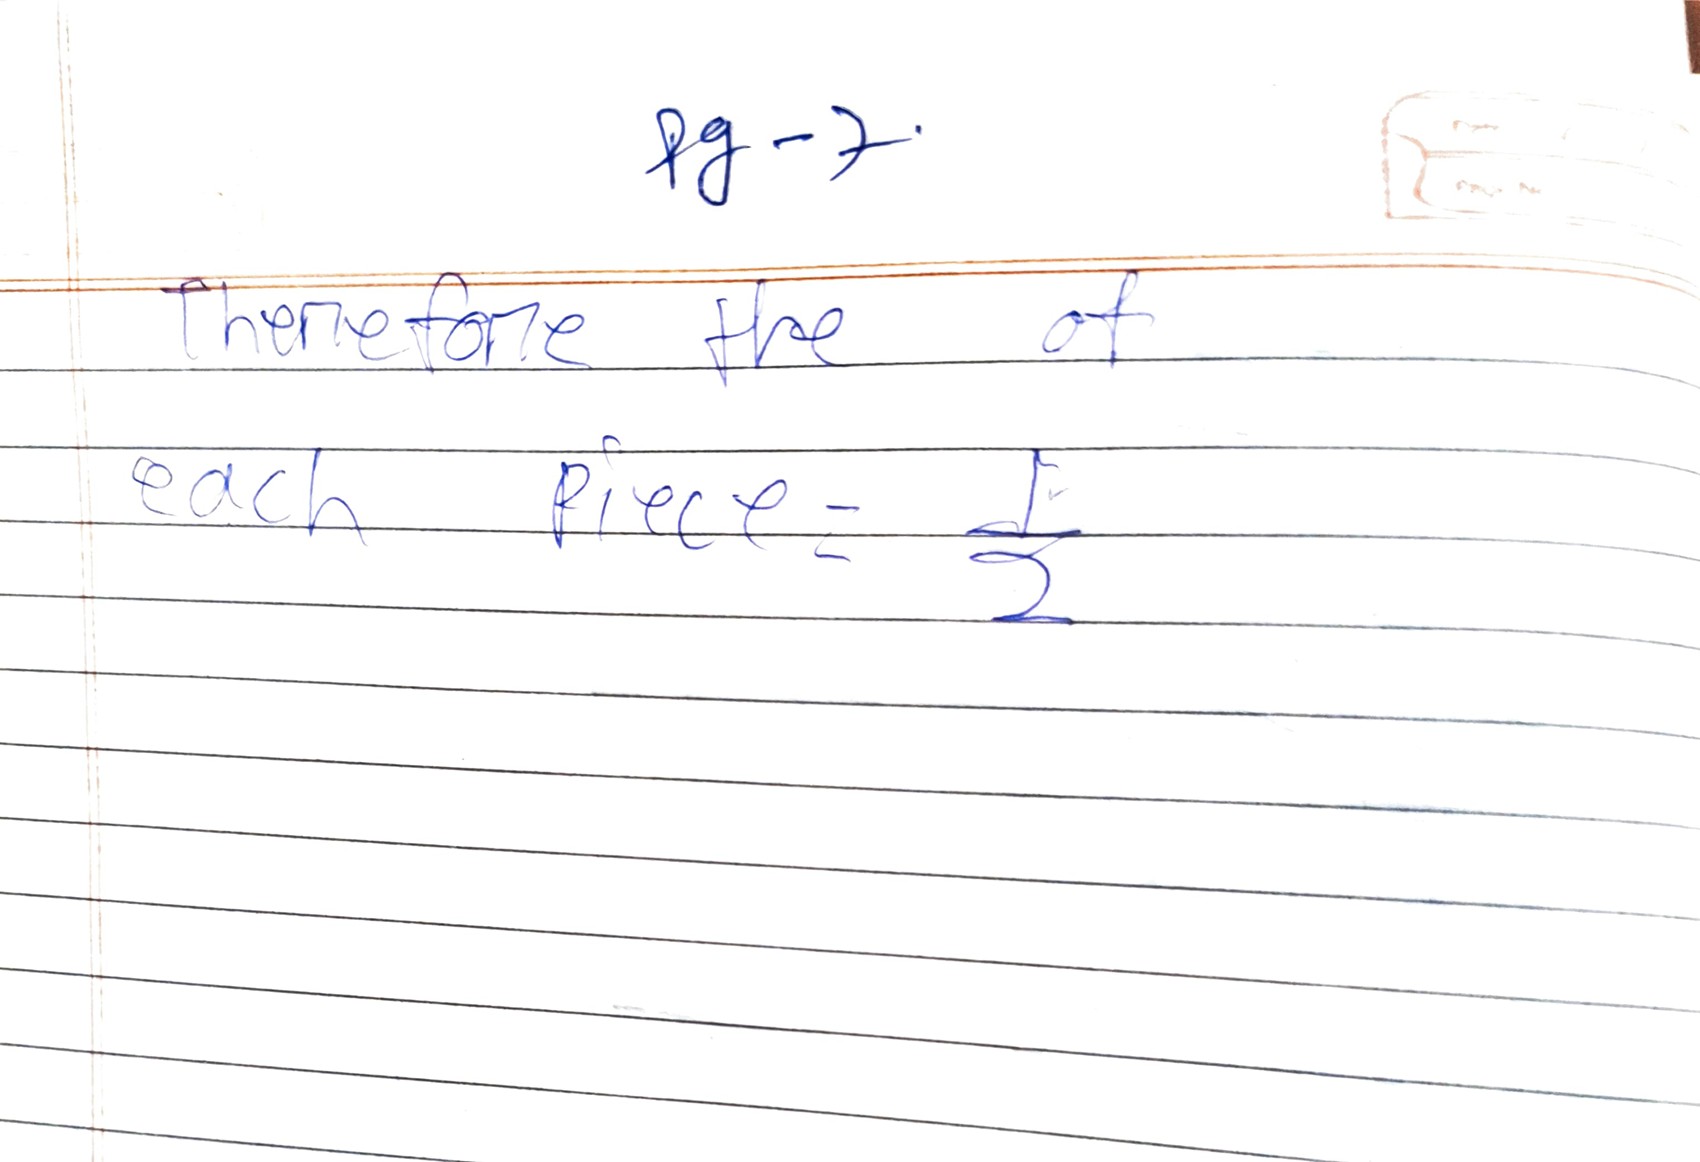 Pg - 7.
Therefore the of
each Piece = 1/2